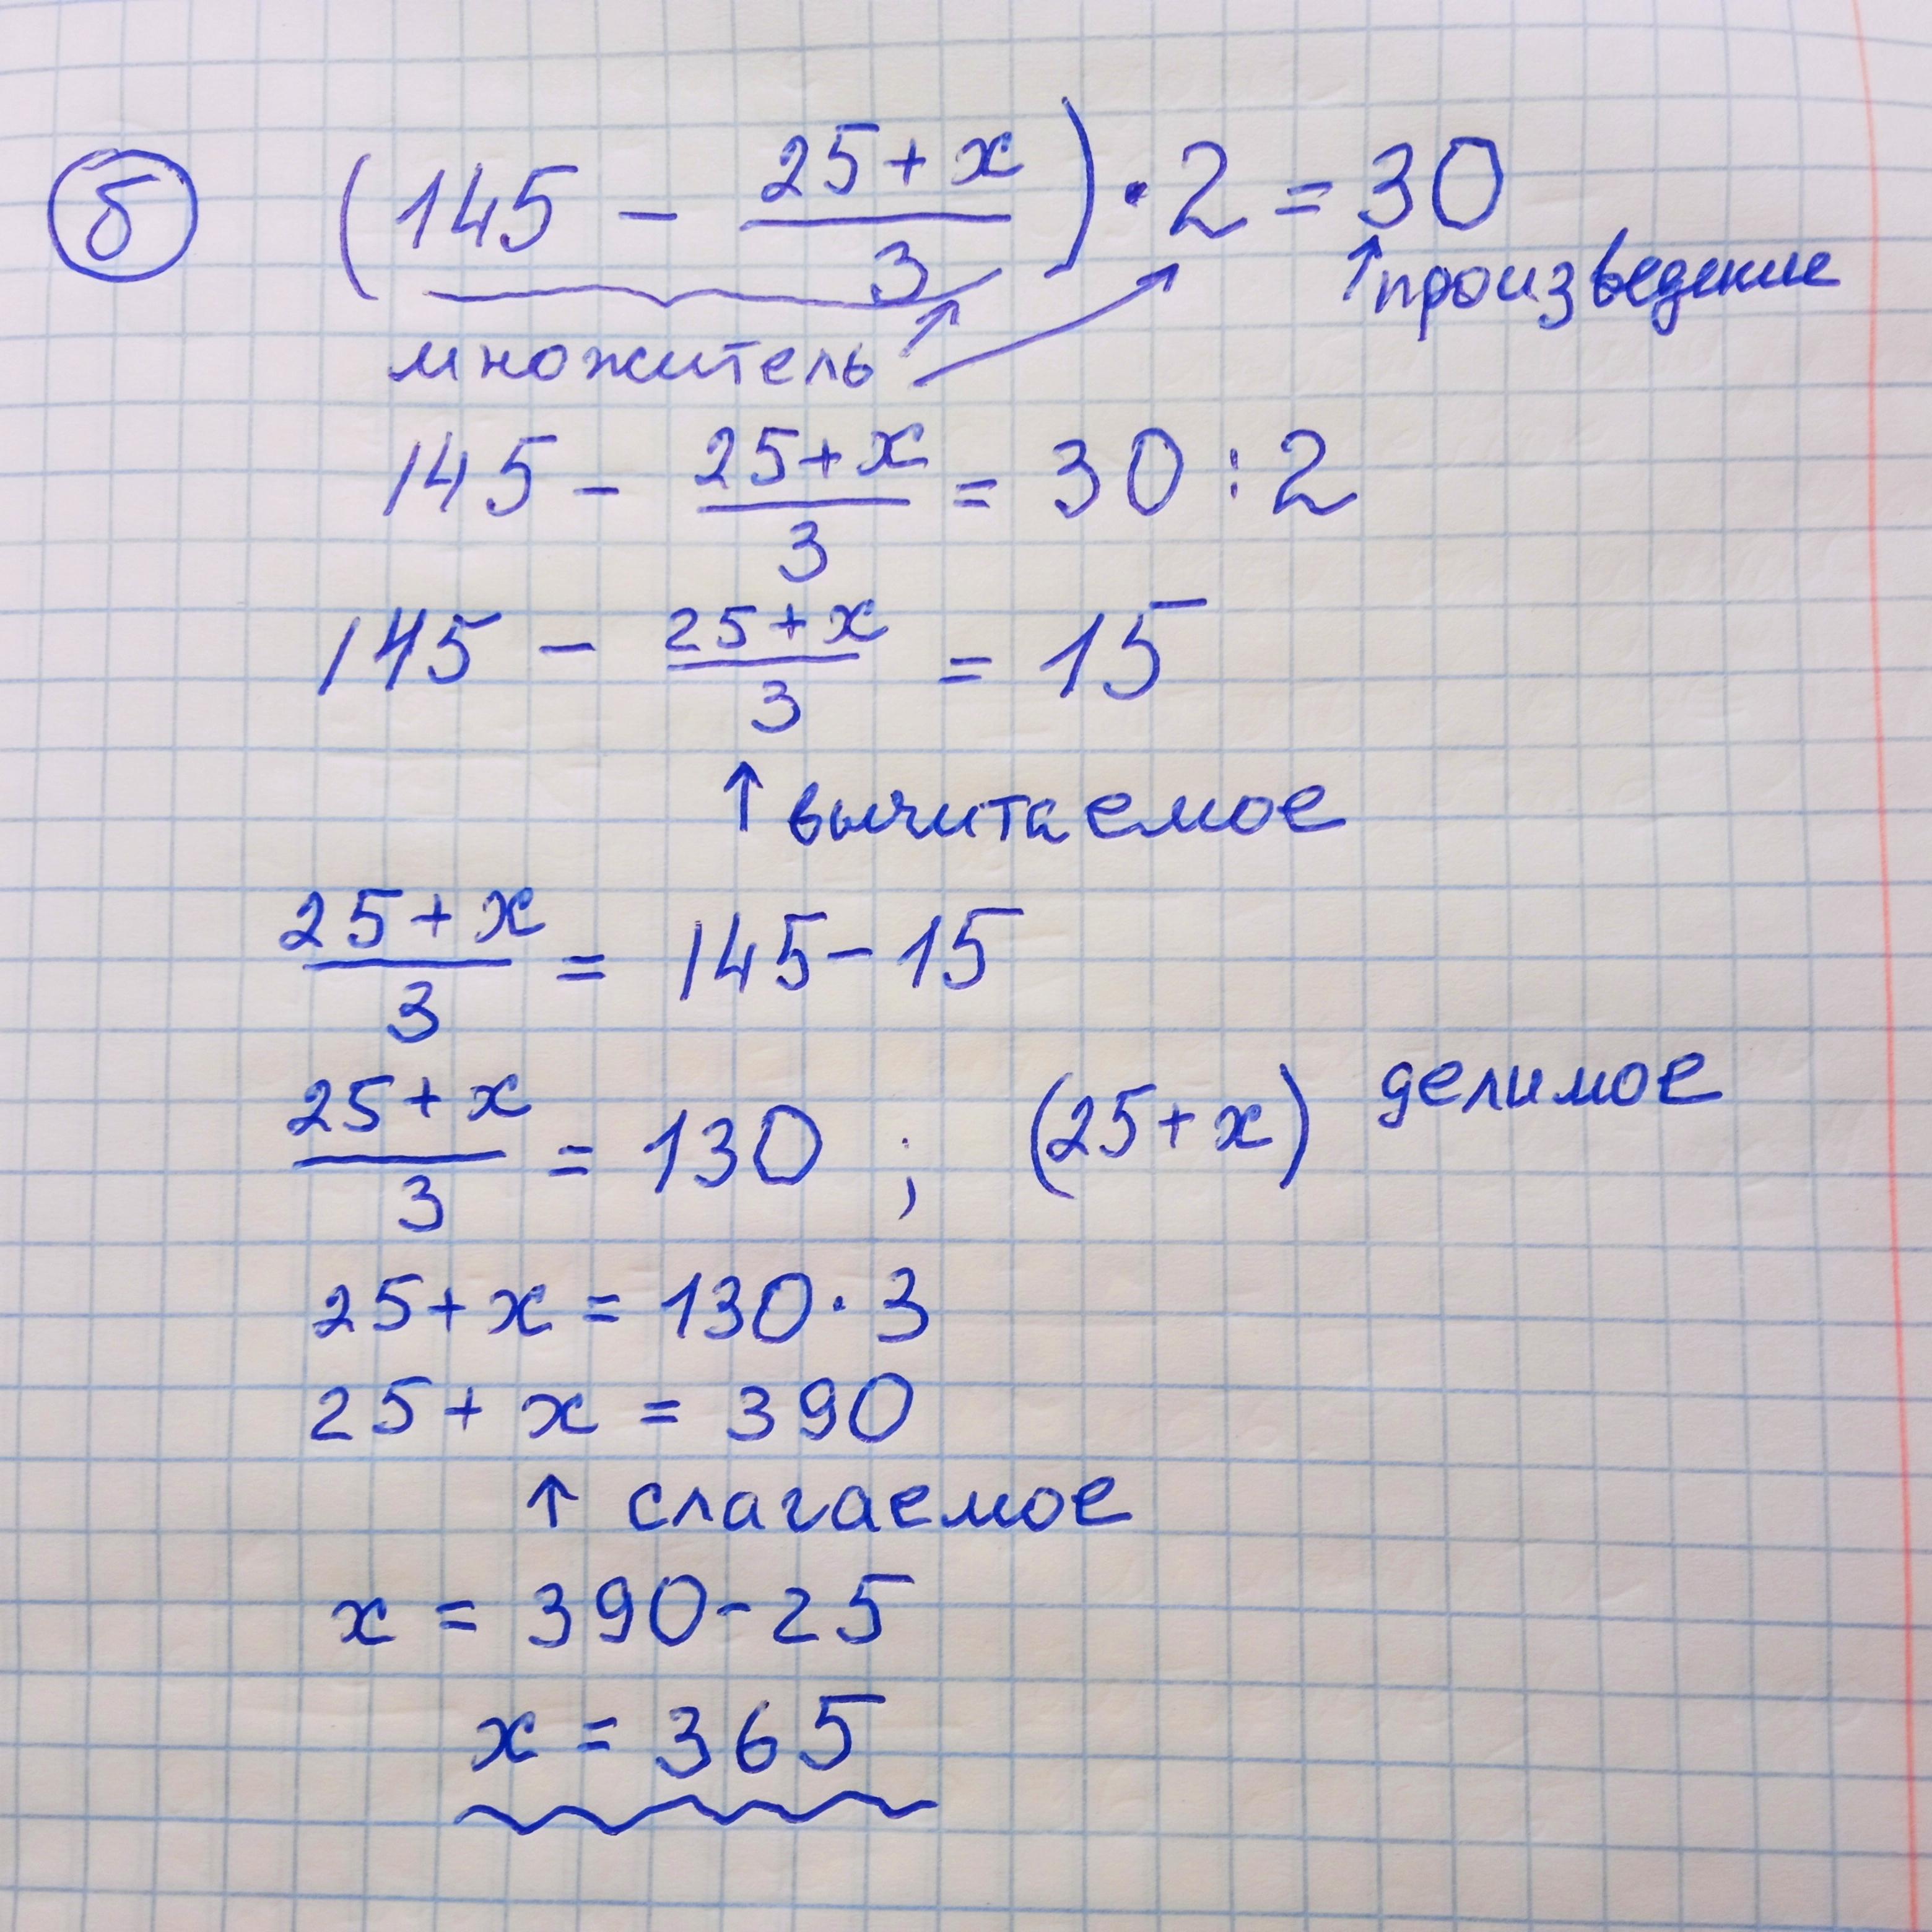 б (145 - (25+x)/3) · 2 = 30
↑ произведение
множитель
145 - (25+x)/3 = 30 : 2
145 - (25+x)/3 = 15
↑ вычитаемое
(25+x)/3 = 145 - 15
(25+x)/3 = 130 ; (25+x) делимое
25+x = 130 · 3
25+x = 390
↑ слагаемое
x = 390 - 25
x = 365